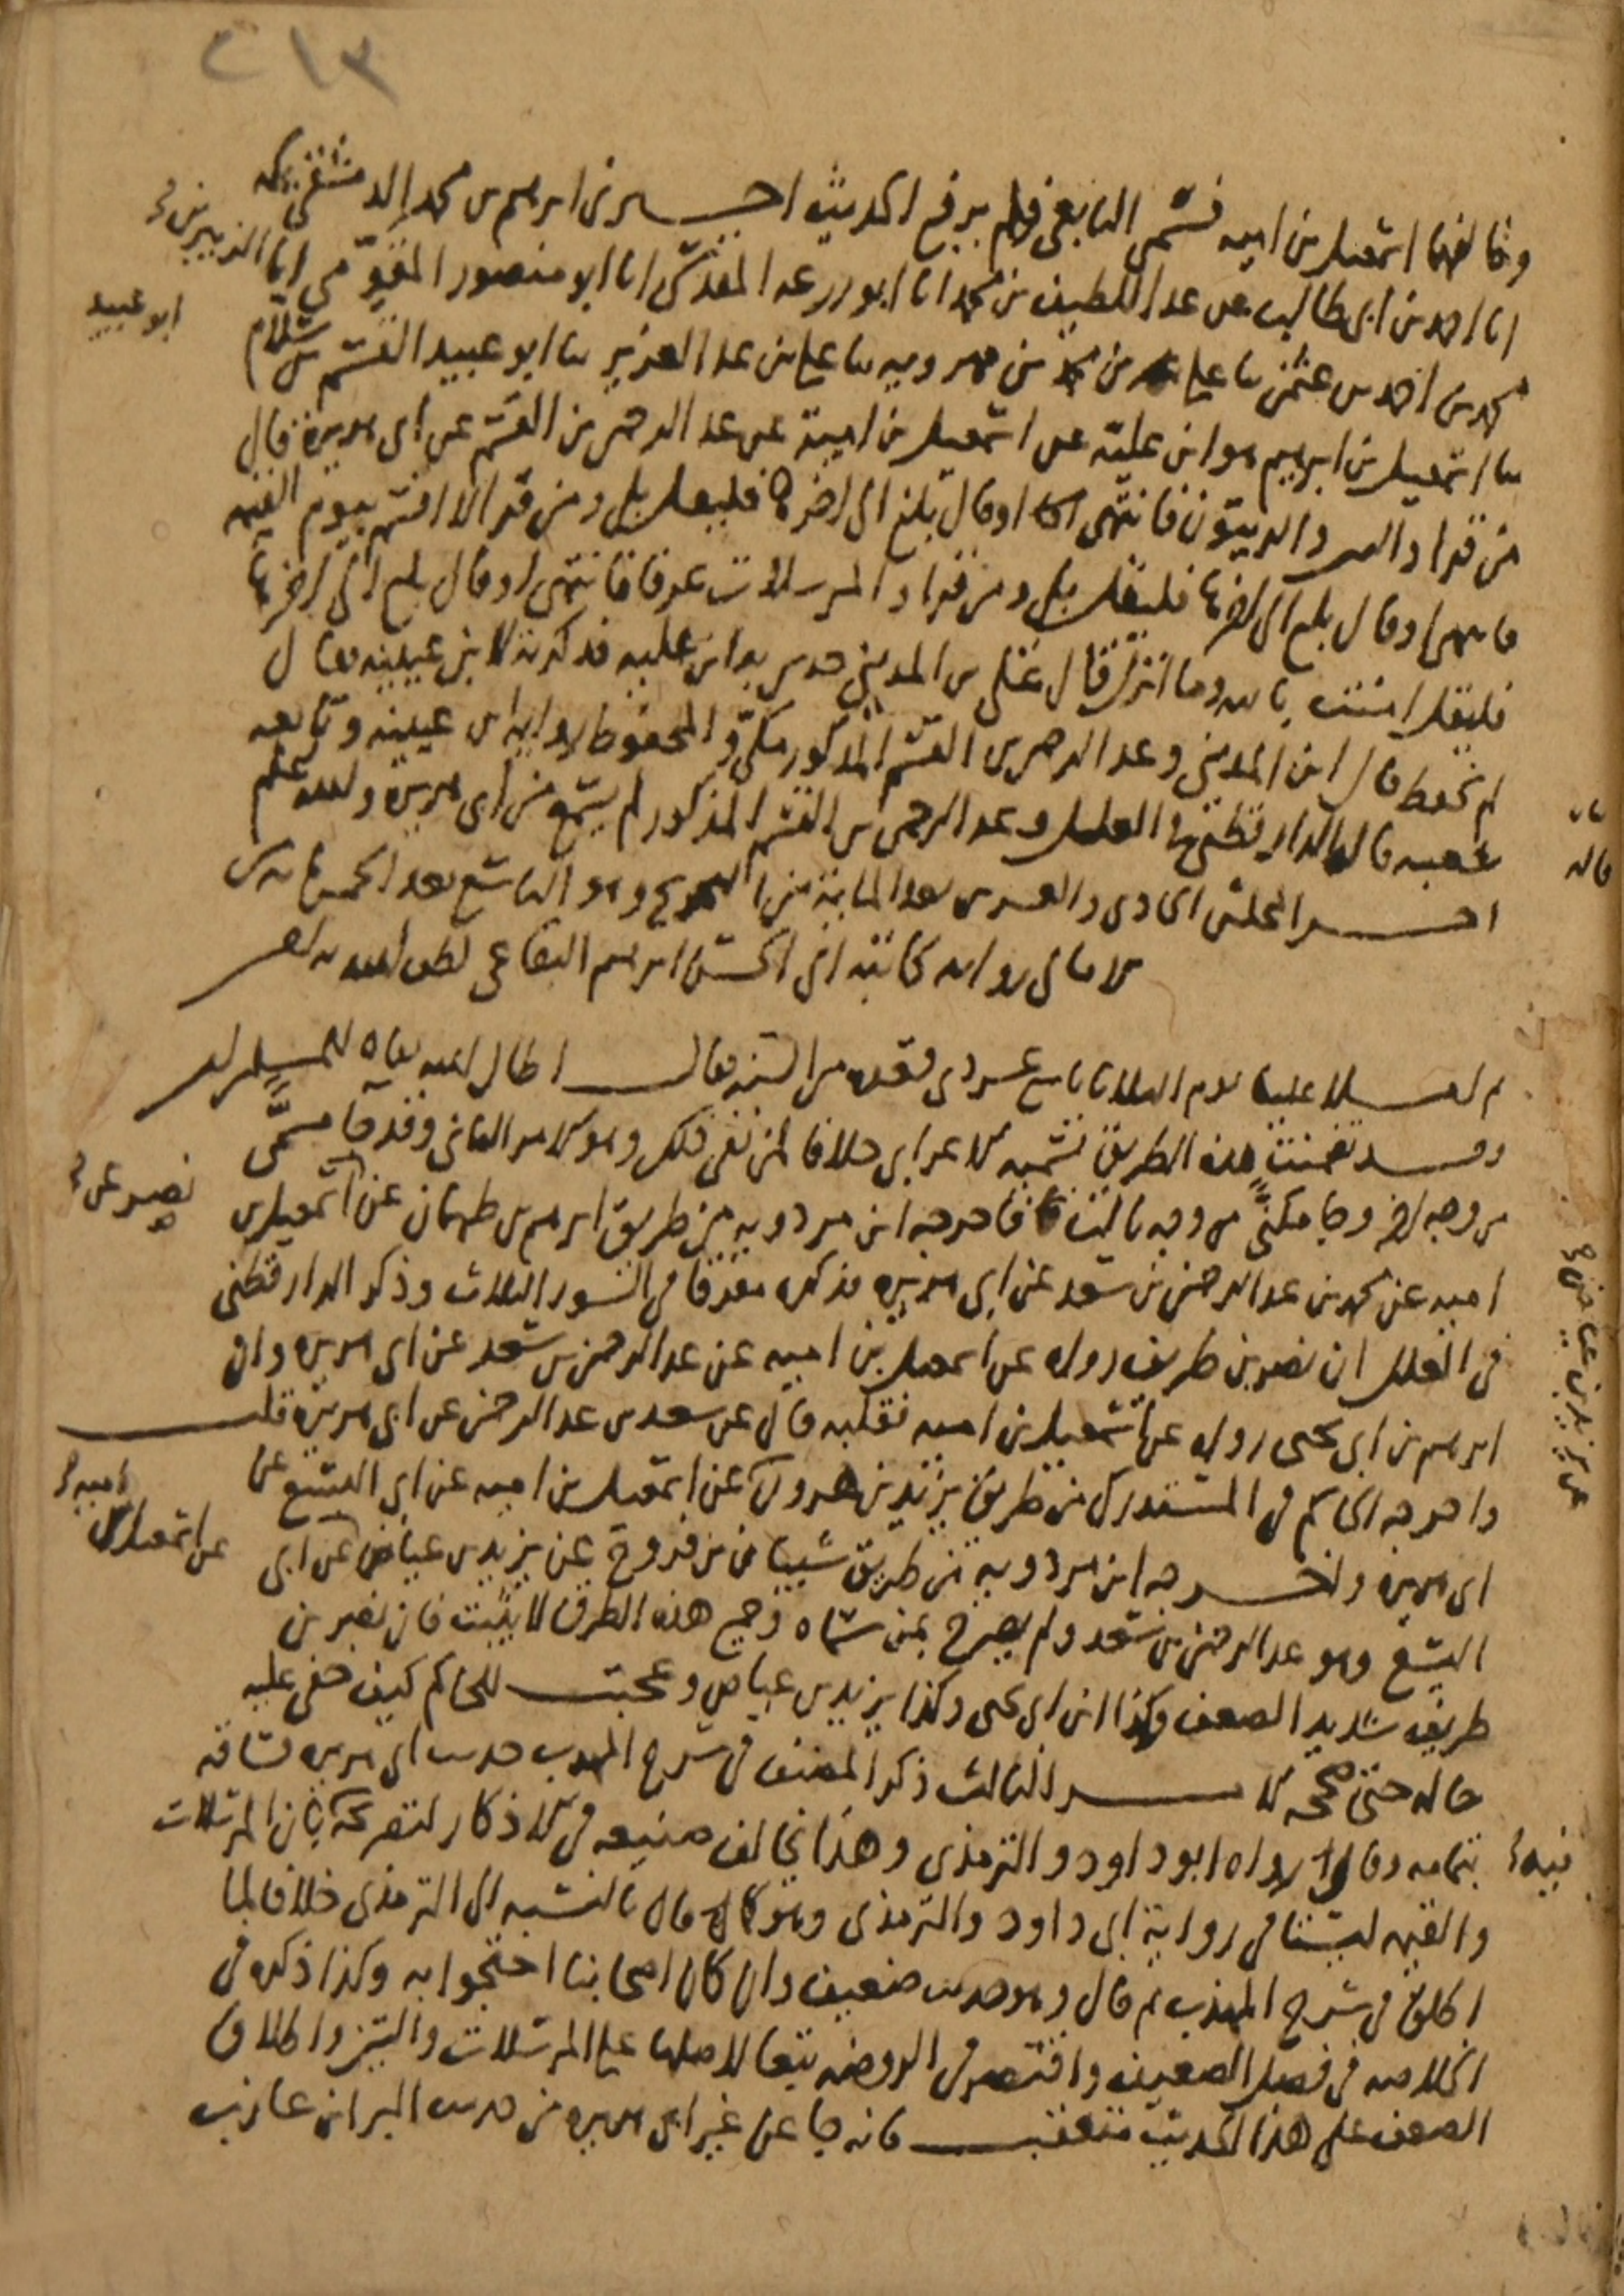 ٢١٣
وخالفهما اسمعيل بن امية فسمى التابعي فلم يرفع الحديث اخبرني ابرهيم بن محمد الدمشقي بمكة
انا احمد بن ابي طالب عن عبد اللطيف بن محمد انا ابو زرعة المقدسي انا ابو منصور المقومي انا الزبير بن
محمد بن احمد بن عثمن ثنا علي بن محمد بن مهرويه ثنا علي بن عبد العزيز ثنا ابو عبيد القسم بن سلام
ابو عبيد
ثنا اسمعيل بن ابرهيم هو ابن علية عن اسمعيل بن امية عن عبد الرحمن بن القسم عن ابي هريرة قال
من قرا والتين والزيتون فانتهى او قال بلغ الى اخرها فليقل بلى ومن قرا لا اقسم بيوم القيمة
فانتهى او قال بلغ الى اخرها فليقل بلى ومن قرا والمرسلات عرفا فانتهى او قال بلغ الى اخرها
فليقل امنت بالله وما انزل قال علي بن المديني حدثني به ابن علية فذكرته لابن عيينة فقال
لم يحفظ قال ابن المديني وعبد الرحمن بن القسم المذكور مكي والمحفوظ رواية ابن عيينة وتابعه
شعبة قاله الدارقطني في العلل وعبد الرحمن بن القسم المذكور لم يسمع من ابي هريرة والله اعلم
قاله
اخر المجلس الحادي والعشرين بعد المائة من التخريج وهو التاسع بعد الخمسمائة من
الامالي رواية كاتبه ابي الحسن ابرهيم البقاعي لطف الله به
ثم املى علينا يوم الثلاثا تاسع عشر ذي القعدة من السنة فقال اطال الله بقاه للمسلمين
وقد تضمنت هذه الطريق تسمية الاعرابي خلافا لمن نفى ذلك وهو الامر الثاني وقد جا مسمى
من وجه اخر وجا مكني من وجه ثالث فاخرجه ابن مردويه من طريق ابرهيم بن طهمان عن اسمعيل بن
نصير عن
امية عن محمد بن عبد الرحمن بن سعد عن ابي هريرة فذكره مفرقا في السور الثلاث وذكر الدارقطني
في العلل ان نصر بن طريف رواه عن اسمعيل بن امية عن عبد الرحمن بن سعد عن ابي هريرة وان
ابرهيم بن ابي يحيى رواه عن اسمعيل بن امية فقلبه قال عن سعد بن عبد الرحمن عن ابي هريرة قلت
واخرجه الحاكم في المستدرك من طريق يزيد بن هرون عن اسمعيل بن امية عن ابي اليسع عن
ابي هريرة واخرجه ابن مردويه من طريق شيبان بن فروخ عن يزيد بن عياض عن ابي
عن اسمعيل بن امية
اليسع وهو عبد الرحمن بن سعد ولم يصرح بمن سماه وجميع هذه الطرق لا يثبت فان نصر بن
طريف شديد الضعف وكذا ابن ابي يحيى وكذا يزيد بن عياض وعجبت للحاكم كيف خفي عليه
حاله حتى صححه الامر الثالث ذكر المصنف في شرح المهذب حديث ابي هريرة فساقه
بتمامه وقال رواه ابو داود والترمذي وهذا يخالف صنيعه في الاذكار لتصريحه بان المرسلات
فيه
والقيمة ليستا في رواية ابي داود والترمذي وهو كما قال بالنسبة الى الترمذي خلافا لما
اطلق في شرح المهذب ثم قال وهو حديث ضعيف وان كان اصحابنا احتجوا به وكذا ذكره في
الخلاصة في فصل الضعيف واقتصر في الروضة تبعا لاصلها على المرسلات والتين واطلاق
الضعف على هذا الحديث متعقب فانه جا عن غير ابي هريرة من حديث البرا بن عازب